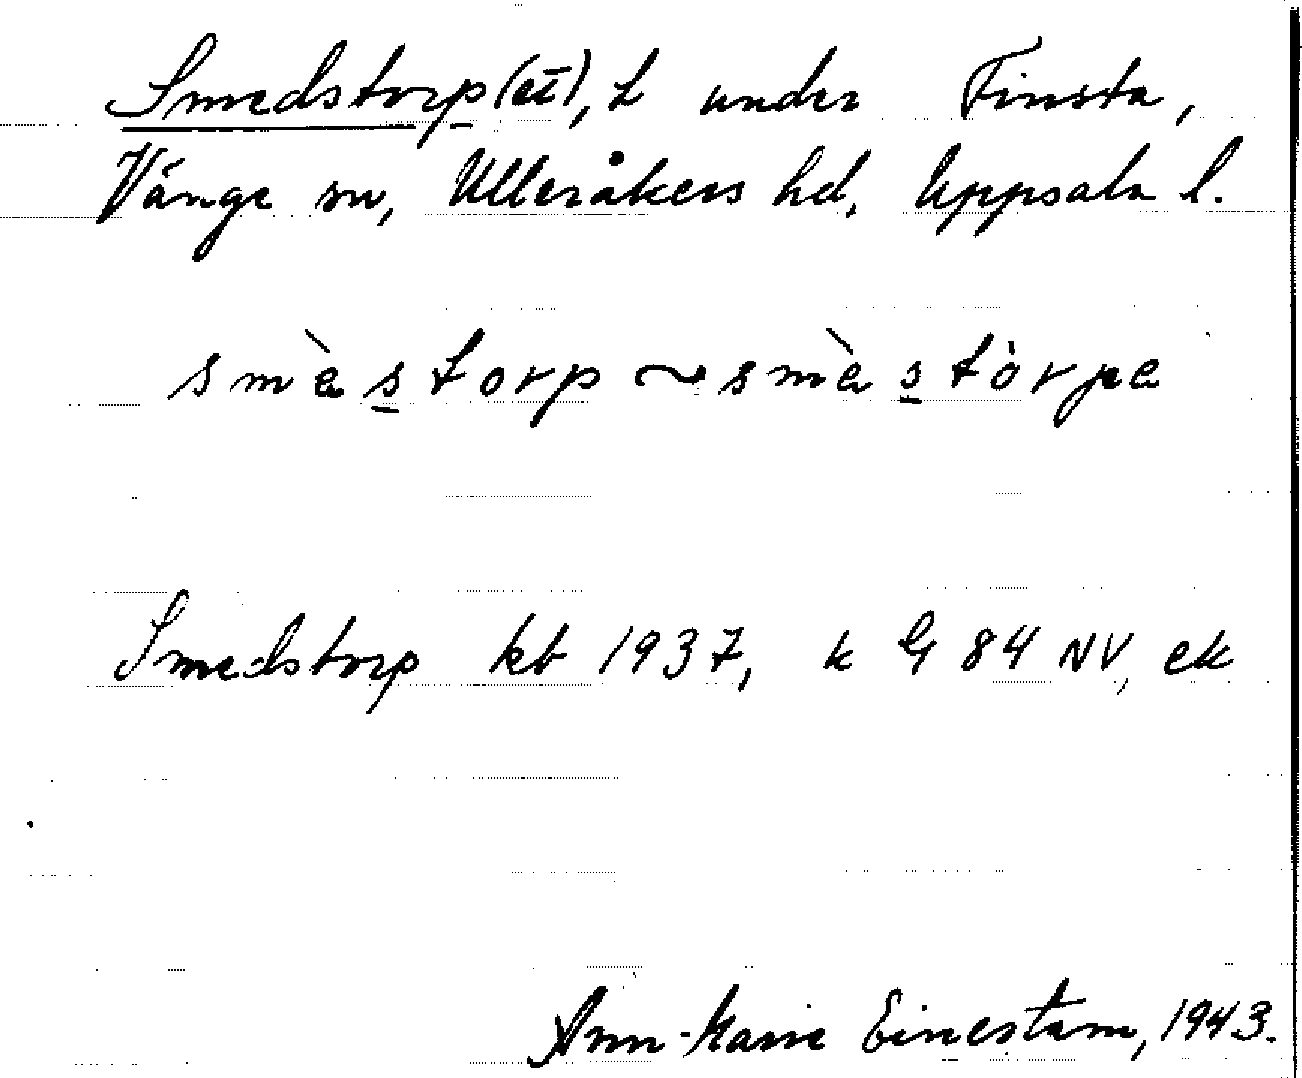 Smedstorp(et), t under Finsta,
Vänge sn, Ulleråkers hd, Uppsala l.
smè̀storp ~ smè̀stòrpe
Smedstorp kb 1937, k G 84 NV, ek
Ann-Marie Einestam, 1943.